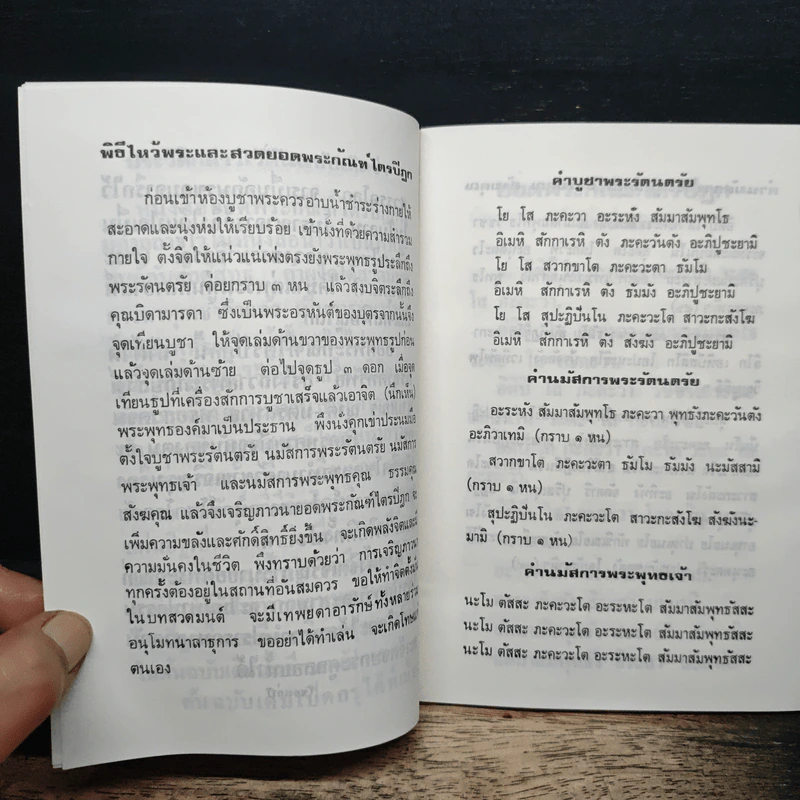 พิธีไหว้พระและสวดยอดพระกัณฑ์ไตรปิฎก
ก่อนเข้าห้องบูชาพระควรอาบน้ำชำระร่างกายให้
สะอาดและนุ่งห่มให้เรียบร้อย เข้านั่งที่ด้วยความสำรวม
กายใจ ตั้งจิตให้แน่วแน่เพ่งตรงยังพระพุทธรูประลึกถึง
พระรัตนตรัย ค่อยกราบ ๓ หน แล้วสงบจิตระลึกถึง
คุณบิดามารดา ซึ่งเป็นพระอรหันต์ของบุตรจากนั้นจึง
จุดเทียนบูชา ให้จุดเล่มด้านขวาของพระพุทธรูปก่อน
แล้วจุดเล่มด้านซ้าย ต่อไปจุดธูป ๓ ดอก เมื่อจุด
เทียนธูปที่เครื่องสักการบูชาเสร็จแล้วเอาจิต (นึกเห็น)
พระพุทธองค์มาเป็นประธาน พึงนั่งคุกเข่าประนมมือ
ตั้งใจบูชาพระรัตนตรัย นมัสการพระรัตนตรัย นมัสการ
พระพุทธเจ้า และนมัสการพระพุทธคุณ ธรรมคุณ
สังฆคุณ แล้วจึงเจริญภาวนายอดพระกัณฑ์ไตรปิฎก
เพิ่มความขลังและศักดิ์สิทธิ์ยิ่งขึ้น จะเกิดพลังจิตและมี
ความมั่นคงในชีวิต พึงทราบด้วยว่า การเจริญภาวนา
ทุกครั้งต้องอยู่ในสถานที่อันสมควร ขอให้ทำจิตตั้งมั่น
ในบทสวดมนต์ จะมีเทพยดาอารักษ์ทั้งหลายร่วม
อนุโมทนาสาธุการ ขออย่าได้ทำเล่น จะเกิดโทษแก่
ตนเอง
คำบูชาพระรัตนตรัย
โย โส ภะคะวา อะระหัง สัมมาสัมพุทโธ
อิเมหิ สักกาเรหิ ตัง ภะคะวันตัง อะภิปูชะยามิ
โย โส สวากขาโต ภะคะวะตา ธัมโม
อิเมหิ สักกาเรหิ ตัง ธัมมัง อะภิปูชะยามิ
โย โส สุปะฏิปันโน ภะคะวะโต สาวะกะสังโฆ
อิเมหิ สักกาเรหิ ตัง สังฆัง อะภิปูชะยามิ
คำนมัสการพระรัตนตรัย
อะระหัง สัมมาสัมพุทโธ ภะคะวา พุทธังภะคะวันตัง
อะภิวาเทมิ (กราบ ๑ หน)
สวากขาโต ภะคะวะตา ธัมโม ธัมมัง นะมัสสามิ
(กราบ ๑ หน)
สุปะฏิปันโน ภะคะวะโต สาวะกะสังโฆ สังฆังนะ-
มามิ (กราบ ๑ หน)
คำนมัสการพระพุทธเจ้า
นะโม ตัสสะ ภะคะวะโต อะระหะโต สัมมาสัมพุทธัสสะ
นะโม ตัสสะ ภะคะวะโต อะระหะโต สัมมาสัมพุทธัสสะ
นะโม ตัสสะ ภะคะวะโต อะระหะโต สัมมาสัมพุทธัสสะ